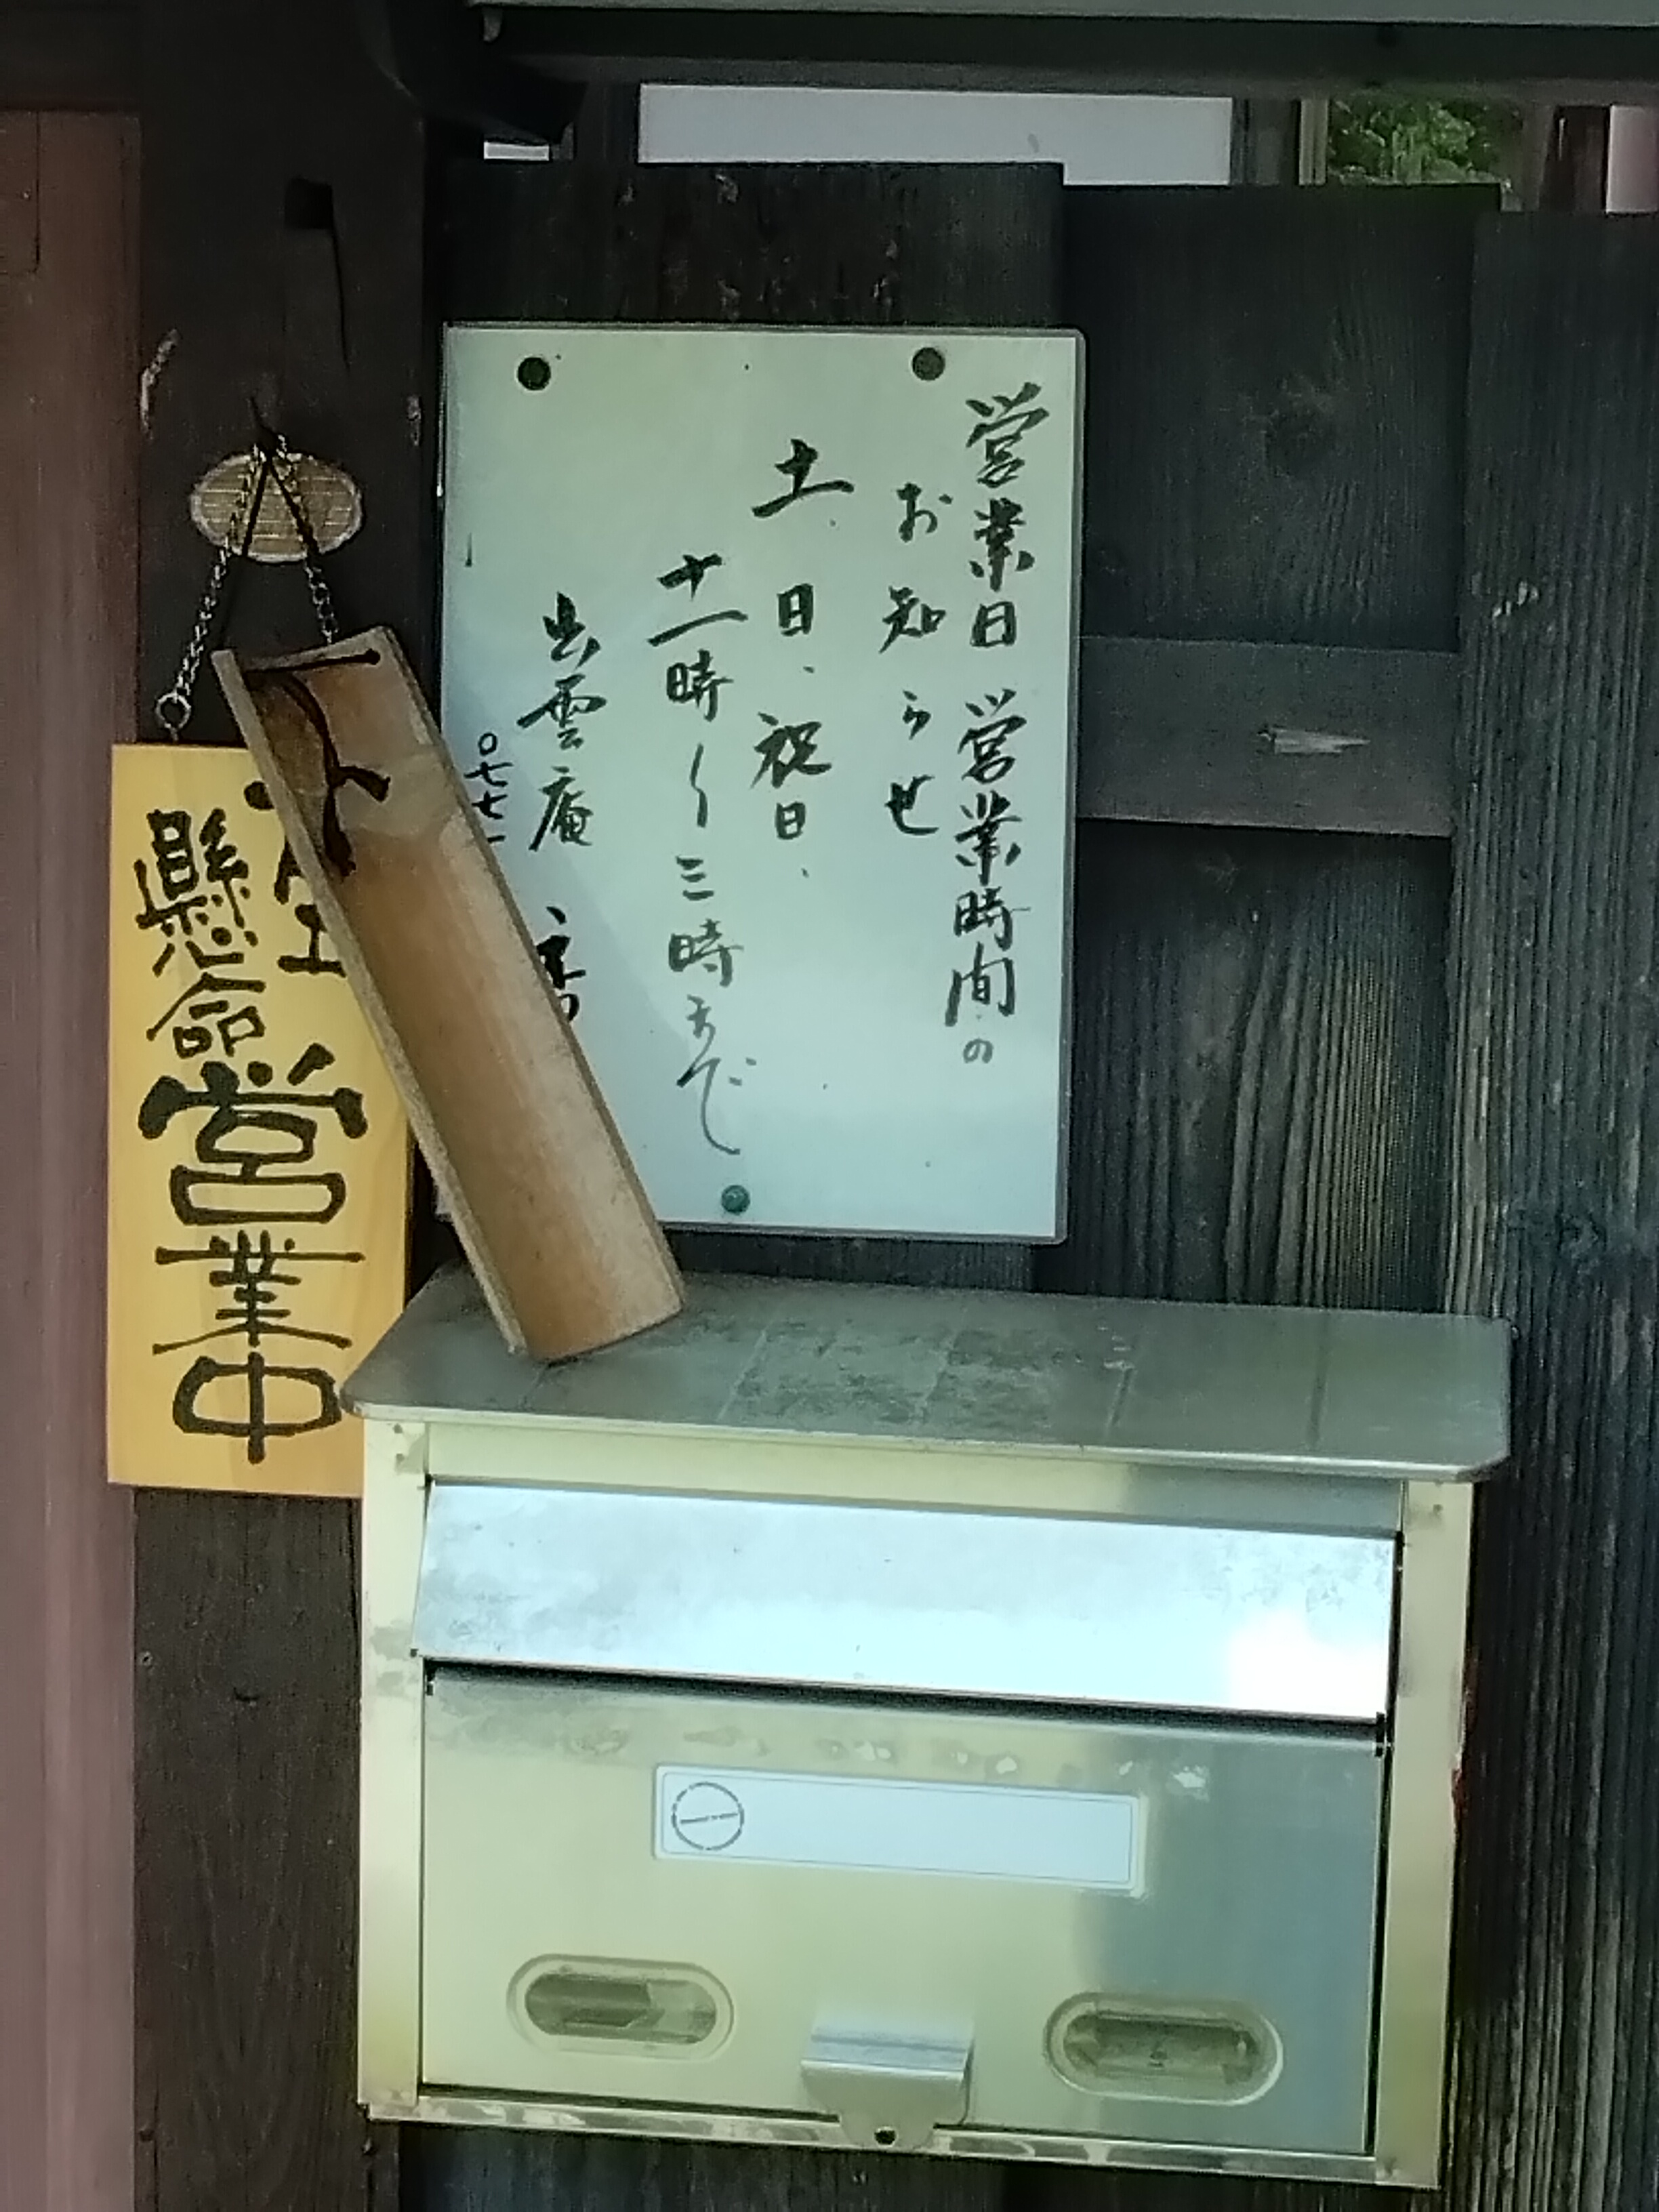 営業日 営業時間の
お知らせ
土、日、祝日、
十一時〜三時まで
出雲庵
〇七七一
懸命
営業中